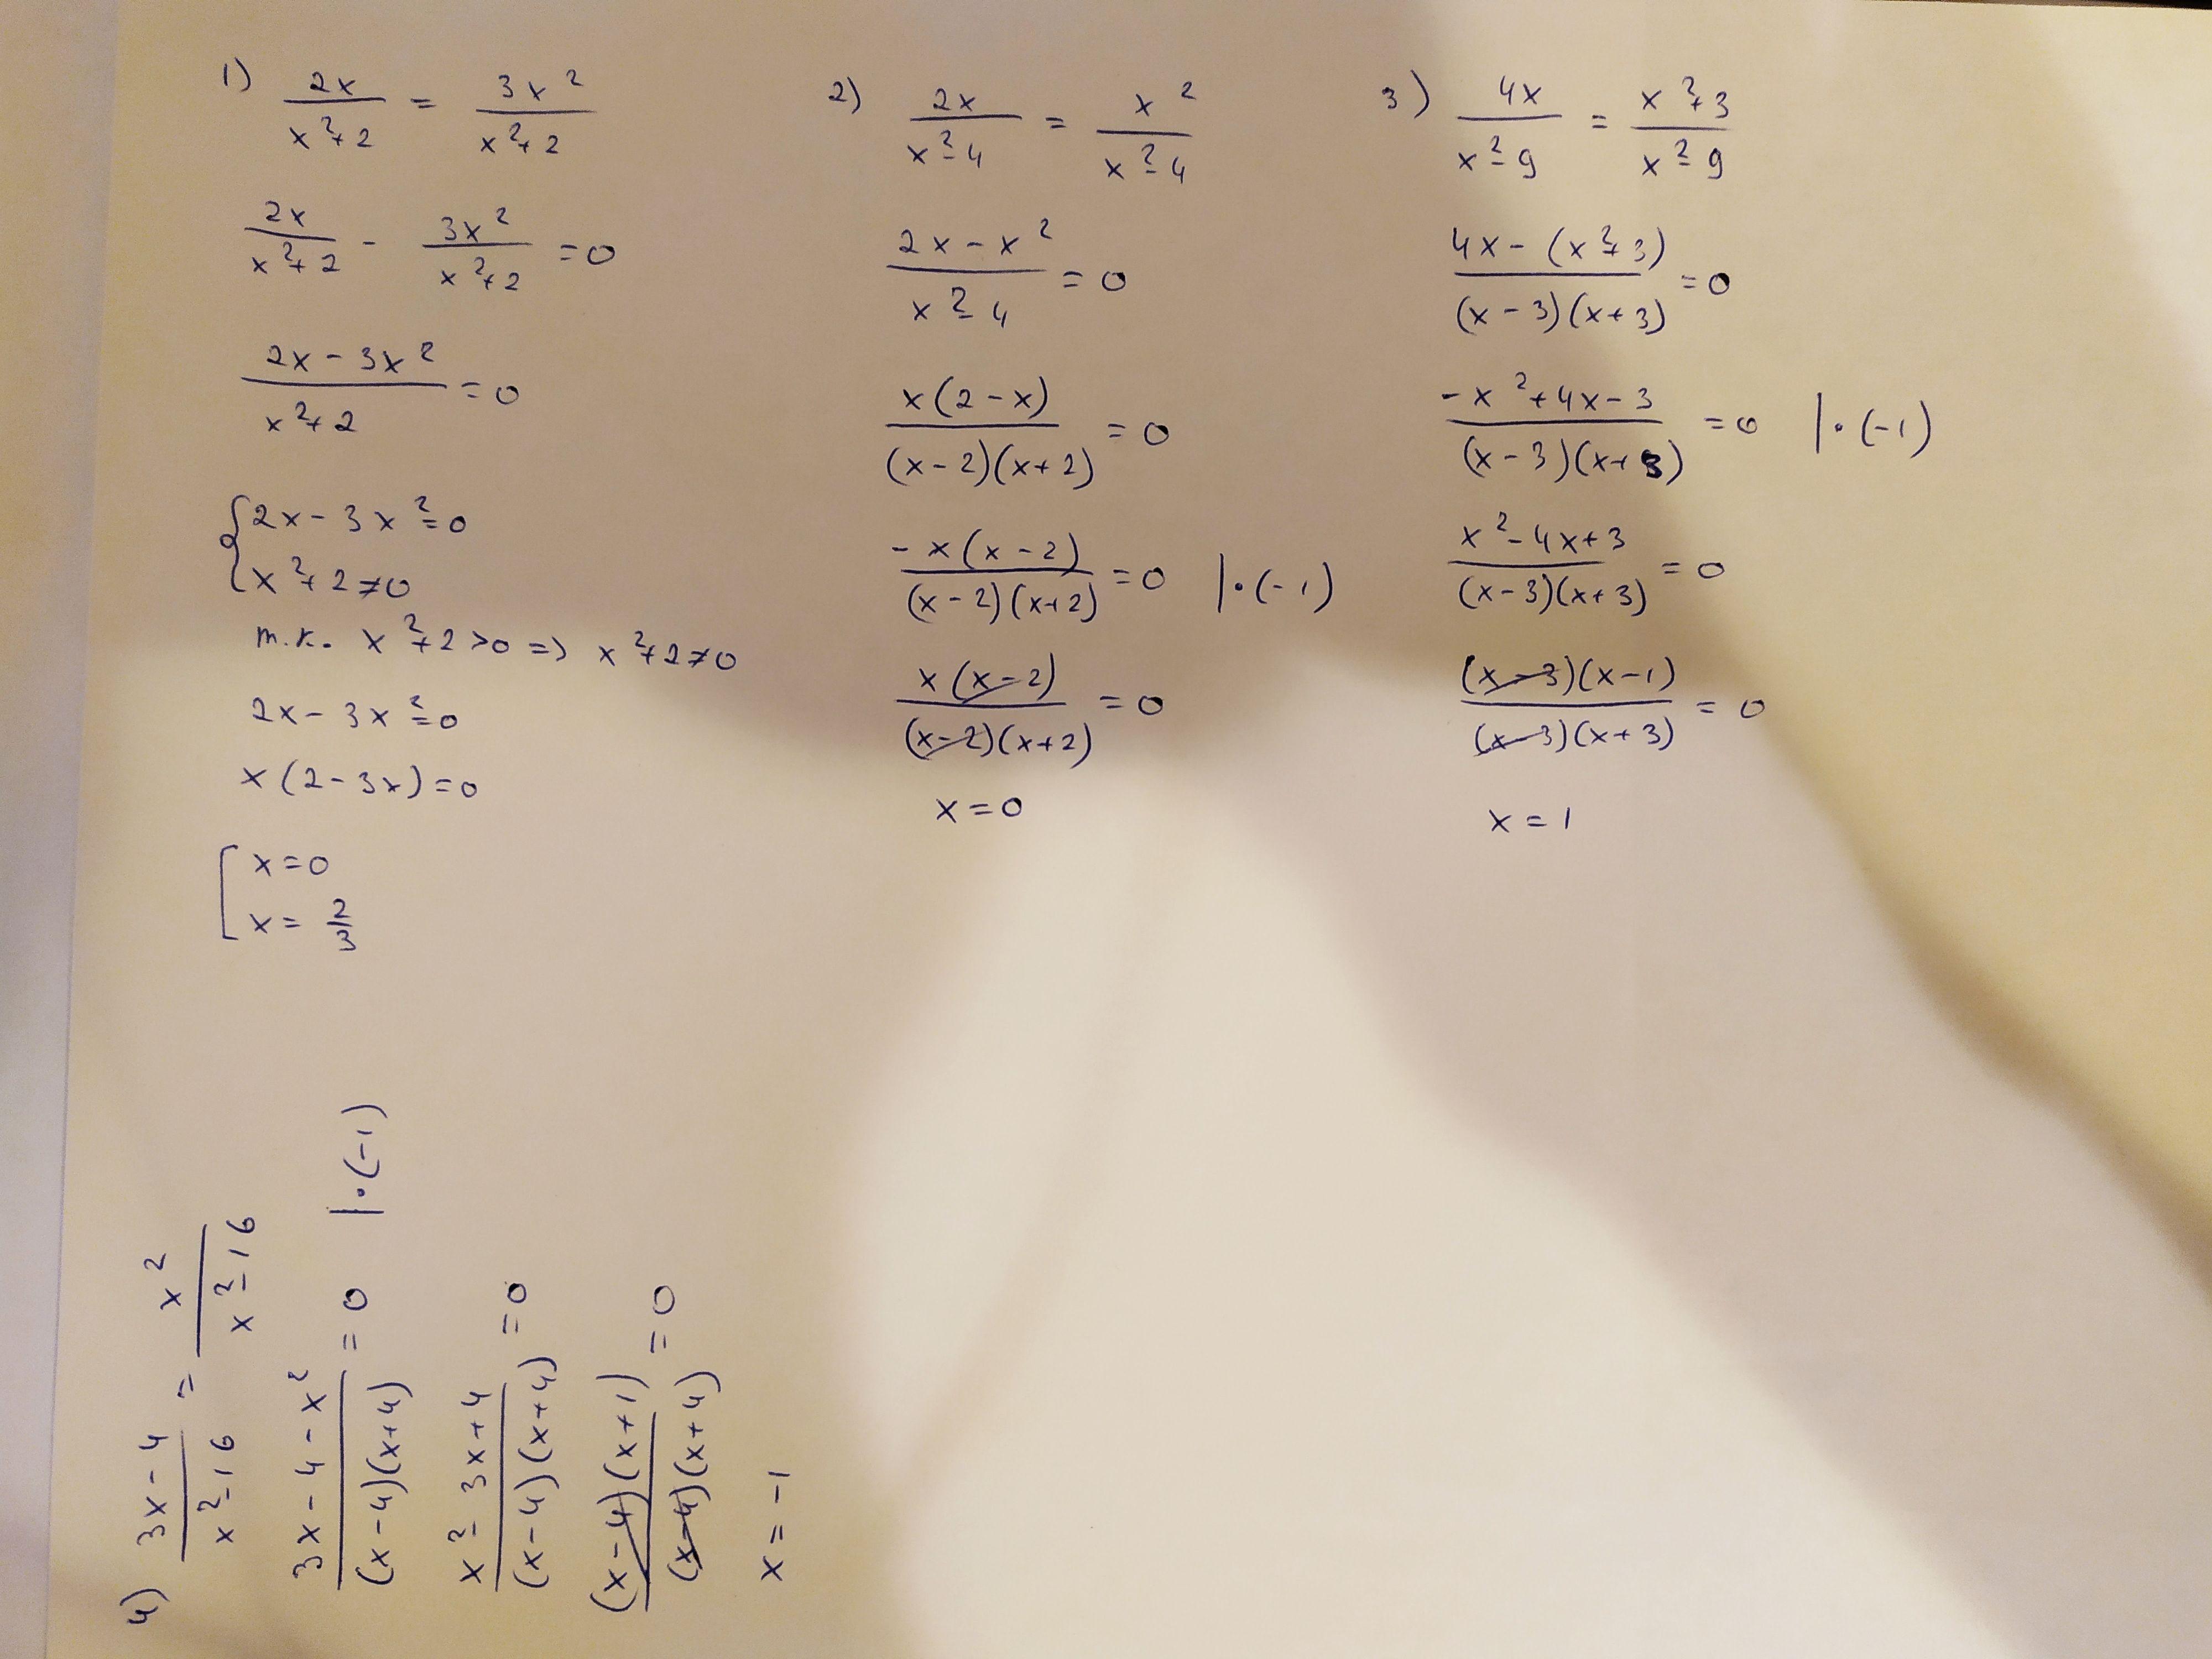 1) 2x/(x²+2) = 3x²/(x²+2)
2x/(x²+2) - 3x²/(x²+2) = 0
(2x-3x²)/(x²+2) = 0
{2x-3x²=0
{x²+2≠0
т.к. x²+2>0 => x²+2≠0
2x-3x²=0
x(2-3x)=0
[x=0
[x=2/3
2) 2x/(x²-4) = x²/(x²-4)
(2x-x²)/(x²-4) = 0
x(2-x)/((x-2)(x+2)) = 0
-x(x-2)/((x-2)(x+2)) = 0 |·(-1)
x(x-2)/((x-2)(x+2)) = 0
x=0
3) 4x/(x²-9) = (x²+3)/(x²-9)
(4x-(x²+3))/((x-3)(x+3)) = 0
(-x²+4x-3)/((x-3)(x+3)) = 0 |·(-1)
(x²-4x+3)/((x-3)(x+3)) = 0
(x-3)(x-1)/((x-3)(x+3)) = 0
x=1
4) (3x-4)/(x²-16) = x²/(x²-16)
(3x-4-x²)/((x-4)(x+4)) = 0 |·(-1)
(x²-3x+4)/((x-4)(x+4)) = 0
(x-4)(x+1)/((x-4)(x+4)) = 0
x=-1